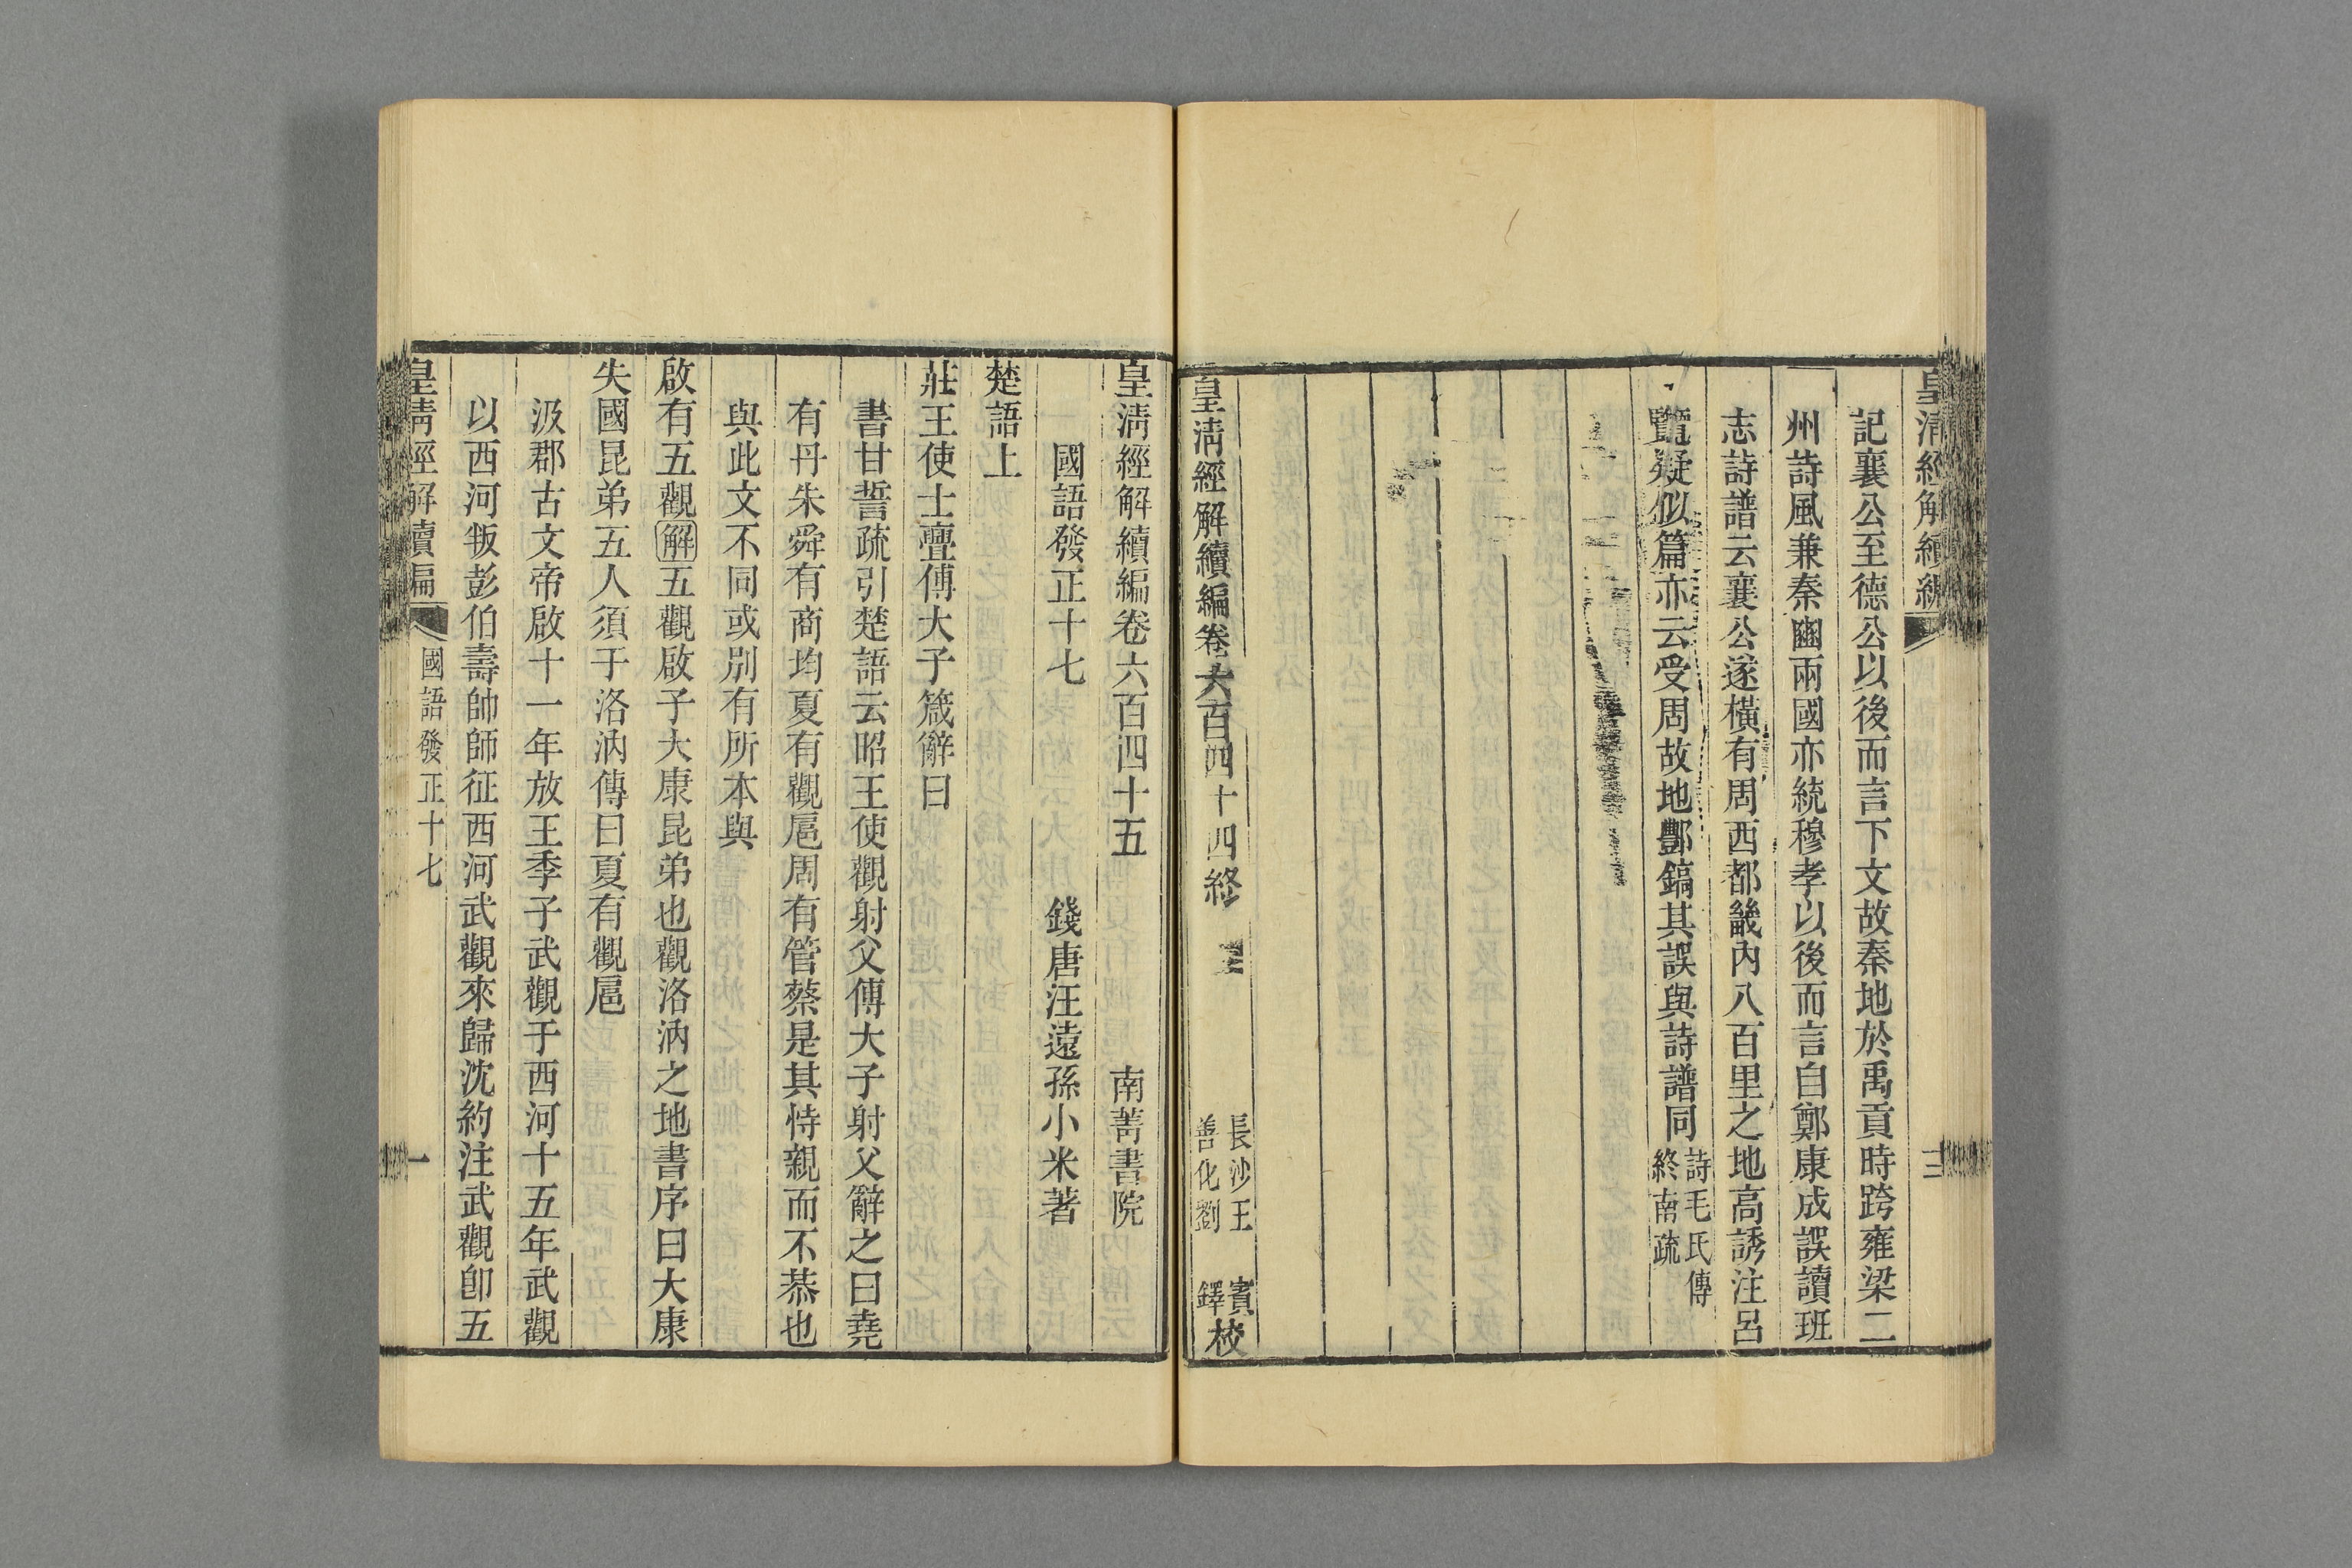 皇清經解續編
記襄公至德公以後而言下文故秦地於禹貢時跨雍梁二
州詩風兼秦豳兩國亦統穆孝以後而言自鄭康成誤讀班
志詩譜云襄公遂橫有周西都畿內八百里之地高誘注呂
覽疑似篇亦云受周故地酆鎬其誤與詩譜同
詩毛氏傳
終南疏
皇清經解續編卷六百四十四終
長沙王
善化劉
賓
鐸
校
皇清經解續編卷六百四十五
南菁書院
國語發正十七
錢唐汪遠孫小米著
楚語上
莊王使士亹傅大子箴辭曰
書甘誓疏引楚語云昭王使觀射父傅大子射父辭之曰堯
有丹朱舜有商均夏有觀扈周有管蔡是其恃親而不恭也
與此文不同或別有所本與
啟有五觀解五觀啟子大康昆弟也觀洛汭之地書序曰大康
失國昆弟五人須于洛汭傳曰夏有觀扈
汲郡古文帝啟十一年放王季子武觀于西河十五年武觀
以西河叛彭伯壽帥師征西河武觀來歸沈約注武觀卽五
皇清經解續編
國語發正十七
一